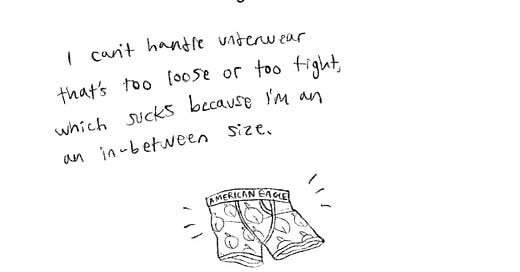 I can't handle underwear
that's too loose or too tight,
which sucks because I'm an
an in-between size.
AMERICAN EAGLE